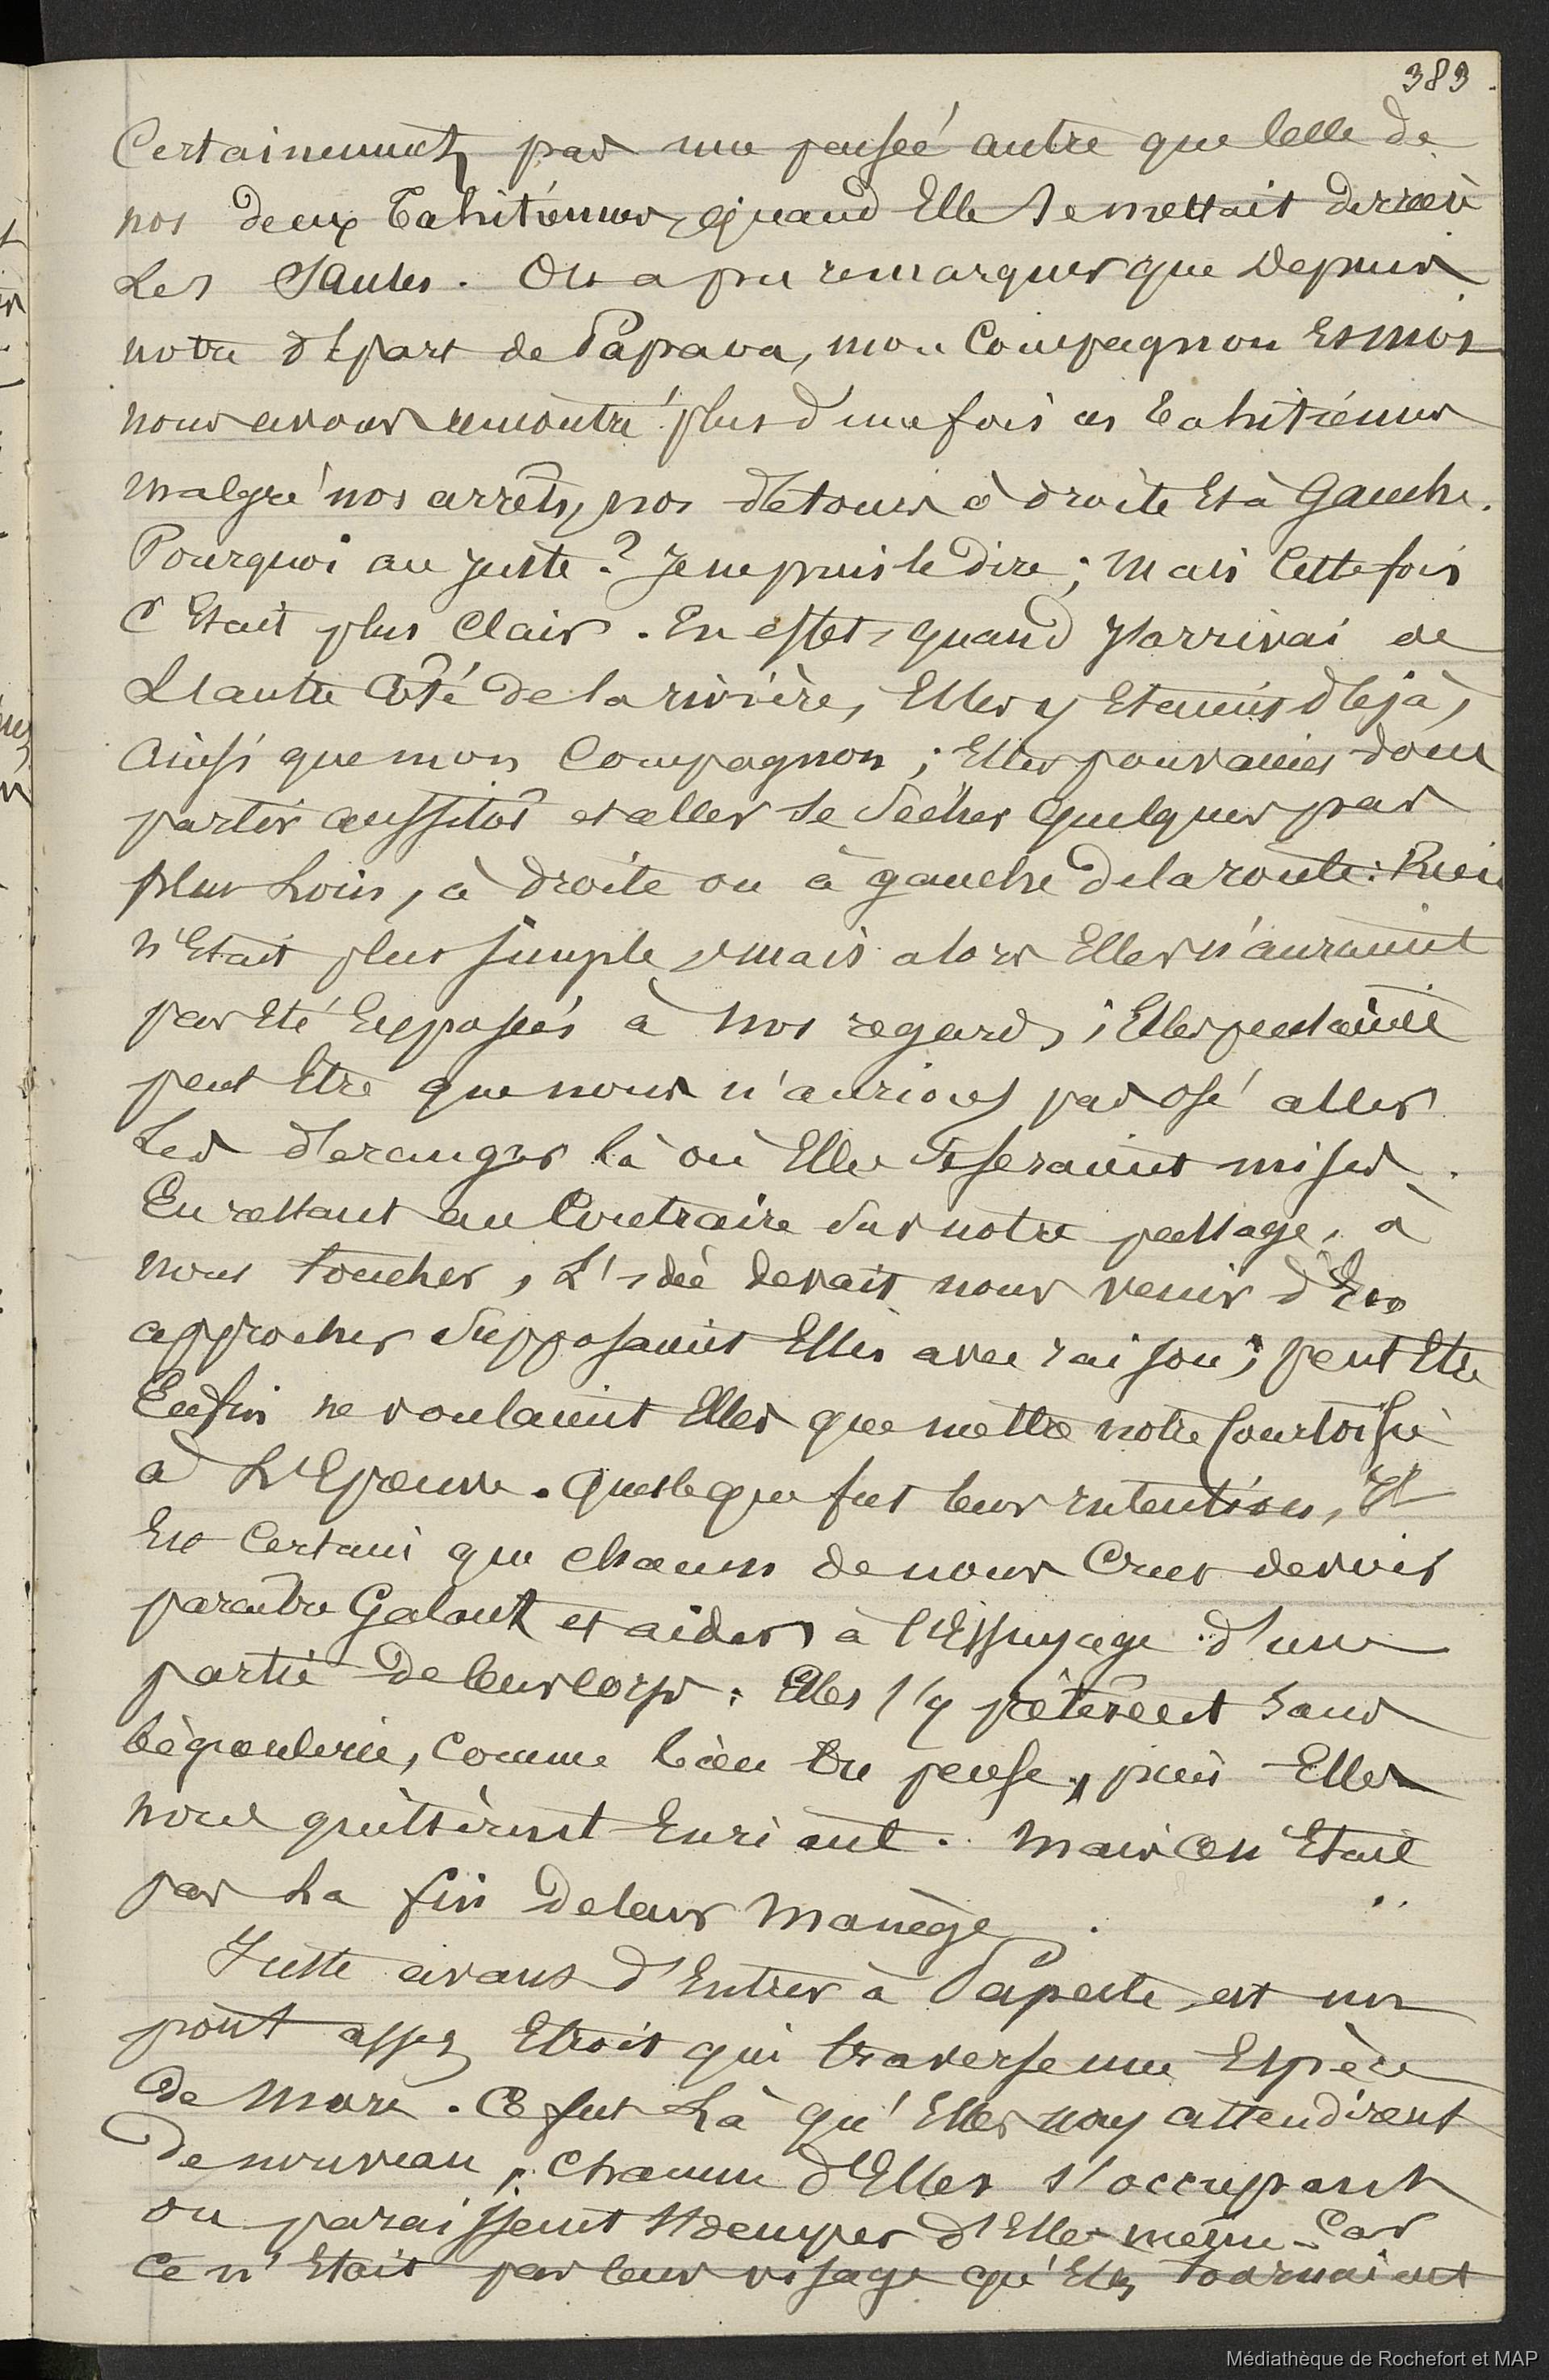 383.
Certainement pas une pensée autre que celle de
nos deux Tahitiennes, quand Elle se mettait derrière
les Saules. On a pu remarquer que Depuis
notre départ de Papava, mon Compagnon Et moi
nous avons rencontré plus d'une fois ces Tahitiennes
malgré nos arrêts, nos détours à droite Et à Gauche.
Pourquoi au juste ? Je ne puis le Dire ; Mais Cette fois
C'Etait plus Clair. En effet, quand J'arrivai de
L'autre Côté de la rivière, Elles y Etaient déjà,
Ainsi que mon Compagnon ; Elles pouvaient donc
partir aussitôt et aller se sécher quelques pas
plus Loin, à droite ou à gauche de la route : Rien
n'Etait plus simple, mais alors Elles n'auraient
pas Eté Exposées à nos regards ; Elles pensaient
peut Etre que nous n'aurions pas osé aller
Les déranger là où Elles se seraient mises.
En restant au Contraire sur notre passage, à
nous toucher, L'idée devait nous venir d'En
approcher supposaient Elles avec raison ; peut Etre
Enfin ne voulaient Elles que mettre notre Courtoisie
à L'Epreuve. Quelle que fut leur intention, Il
Est Certain que chacun de nous Crut devoir
paraître Galant et aider à l'Essuyage d'une
partie de leur corps. Elles s'y prêtèrent sans
bégueulerie, Comme bien tu penses, puis Elles
nous quittèrent En riant. Mais Ce n'Etait
pas La fin de leur Manège.
Juste avant d'Entrer à Papeete est un
pont assez Etroit qui traverse une Espèce
de Mare. Ce fut Là qu'Elles nous attendirent
De nouveau, Chacune d'Elles s'occupant
ou paraissant s'occuper d'Elle même. Car
Ce n'Etait pas leur visage qu'Elles tournaient
Médiathèque de Rochefort et MAP